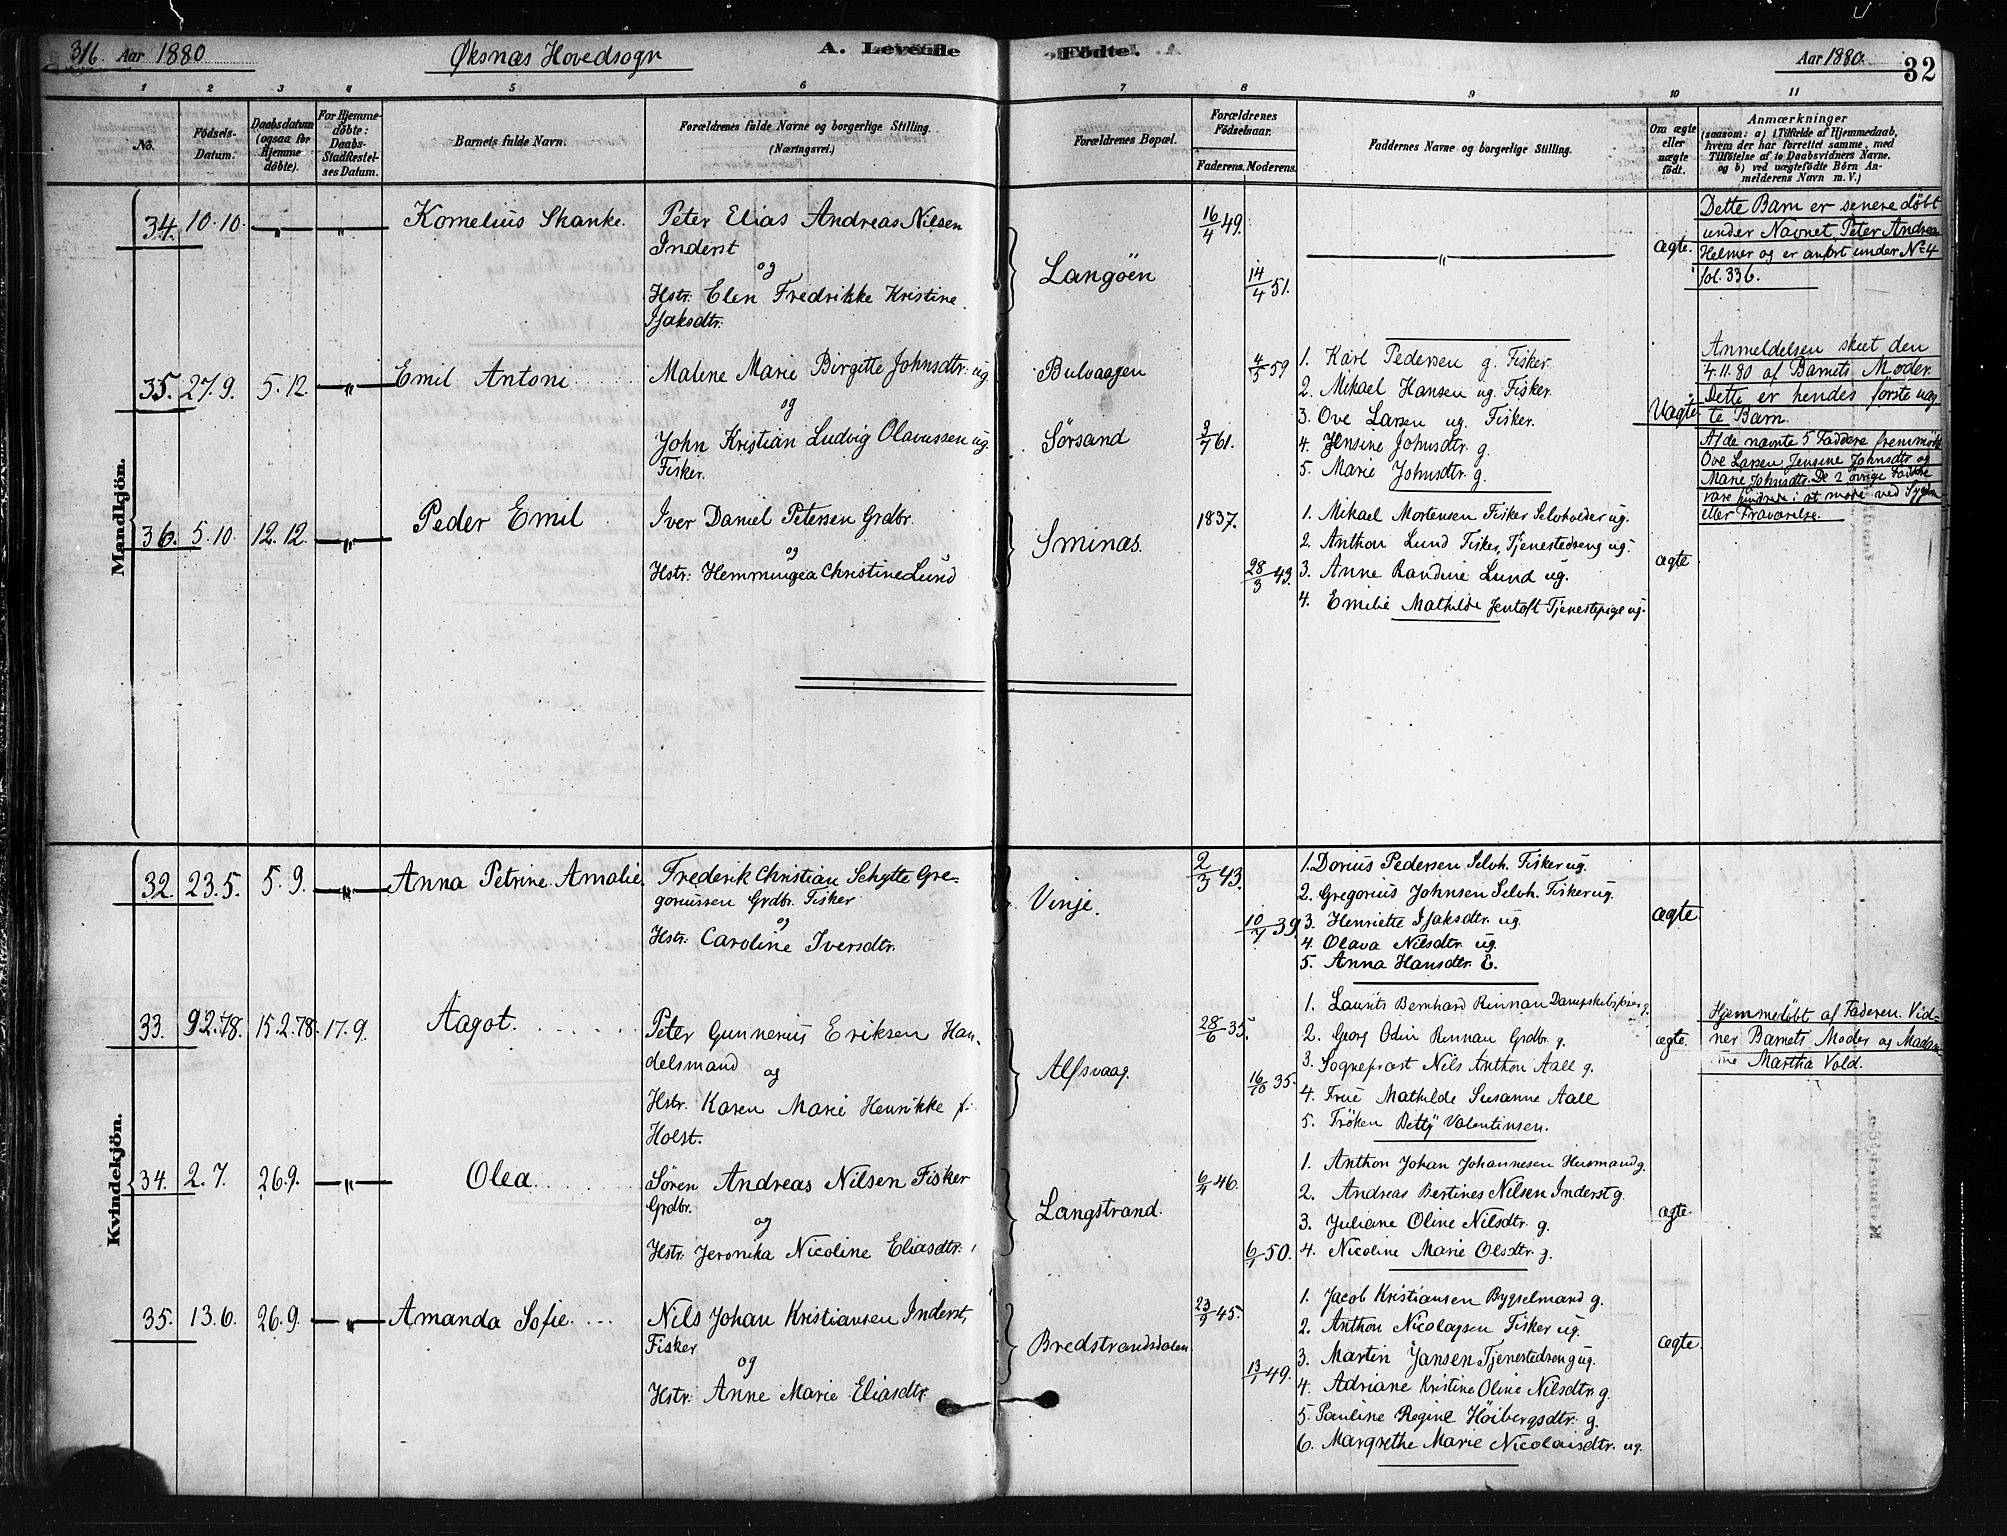 316 Aar 1880 Øksnæs Hovedsogn A. Levende Födte. Aar 1880. 32
1 2 3 4 5 6 7 8 9 10 11
No.
Födsels-
Datum.
Daabsdatum
(ogsaa for
Hjemme
döbte).
For Hjemme-
döbte:
Daabs-
Stadfæstel-
ses Datum.
Barnets fulde Navn.
Forældrenes fulde Navne og borgerlige Stilling.
(Næringsvei.)
Forældrenes Bopæl.
Forældrenes
Födselsaar.
Faderens. Moderens.
Faddernes Navne og borgerlige Stilling.
Om ægte
eller
uægte
födt.
Anmærkninger
(saasom: a) i Tilfælde af Hjemmedaab,
hvem der har forrettet samme, med
Tilföielse af to Daabsvidners Navne.
og b) ved uægtefödte Börn An-
melderens Navn m. V.)
Mandkjön.
34. 10.10. — „ — „ Kornelius Skanke.
Peter Elias Andreas Nilsen
Inderst
og
Hstr. Elen Fredrikke Kristine
Isaksdtr.
Langøen
16/4 49.
14/4 51.
— „ —
ægte.
Dette Barn er senere døbt
under Navnet Peter Andrea
Helmer og er anført under No 4
fol. 336.
35. 27.9. 5.12. — „ — Emil Antoni
Malene Marie Birgitte Johnsdtr. ug.
og
John Kristian Ludvig Olavussen ug.
Fisker.
Bulvaagen
Sørsand
4/3 59
3/7 61.
1. Karl Pedersen g. Fisker.
2. Mikael Hansen ug. Fisker.
3. Ove Larsen ug. Fisker.
4. Jensine Johnsdtr. g.
5. Marie Johnsdtr. g.
Uægte
Anmeldelsen skeet den
4.11.80 af Barnets Moder.
Dette er hendes første uæg
te Barn.
Af de nævnte 5 Faddere fremmødt
Ove Larsen Jensine Johnsdtr og
Marie Johnsdtr. De 2 øvrige Faddere
vare hindrede i at møde ved Sygdom
eller Fraværelse.
36. 5.10. 12.12. — „ — Peder Emil
Iver Daniel Petersen Grdbr.
og
Hstr: Hemmingea Christine Lund
Sminæs.
1837.
28/3 43.
1. Mikael Mortensen Fisker Selvholder ug.
2. Anthon Lund Fisker, Tjenestedreng ug.
3. Anne Randine Lund ug.
4. Emilie Mathilde Jentoft Tjenestepige ug.
ægte
Kvindekjön.
32. 23.5. 5.9. — „ — Anna Petrine Amalie.
Frederik Christian Schytte Gre-
goriussen Grdbr. Fisker
og
Hstr. Caroline Iversdtr.
Vinje.
2/3 43.
10/7 39.
1. Dorius Pedersen Selvh. Fisker ug.
2. Gregorius Johnsen Selvh. Fisker ug.
3. Henriette Isaksdtr. ug.
4. Olava Nilsdtr. ug.
5. Anna Hansdtr. E.
ægte
33. 9.2.78. 15.2.78. 17.9. Aagot.
Peter Gunnerius Eriksen Han-
delsmand og
Hstr. Karen Marie Henrikke f.
Holst.
Alfsvaag.
28/6 35.
16/10 35.
1. Laurits Bernhard Rinnan g.
2. Georg Odin Rinnan Grdbr. g.
3. Sognepræst Nils Anthon Aall g.
4. Frue Mathilde Susanne Aall
5. Frøken Betty Valentinsen.
ægte.
Hjemmedøbt af Faderen. Vid-
ner Barnets Moder og Madam
me Martha Vold.
34. 2.7. 26.9. — „ — Olea
Søren Andreas Nilsen Fisker
Grdbr.
og
Hstr. Jeronika Nicoline Eliasdtr.
Langstrand.
6/4 46.
6/1 50.
1. Anthon Johan Johannesen Husmand g.
2. Andreas Bertines Nilsen Inderst g.
3. Juliane Oline Nilsdtr. g.
4. Nicoline Marie Olsdtr. g.
ægte.
35. 13.6. 26.9. — „ — Amanda Sofie.
Nils Johan Kristiansen Inderst,
Fisker
og
Hstr. Anne Marie Eliasdtr.
Bredstrandsdalen
23/9 45.
13/1 49.
1. Jacob Kristiansen Bygselmand g.
2. Anthon Nicolaysen Fisker ug.
3. Martin Jansen Tjenestedreng ug.
4. Adriane Kristine Oline Nilsdtr. g.
5. Pauline Regine Høibergsdtr. g.
6. Margrethe Marie Nicolaisdtr. ug.
ægte